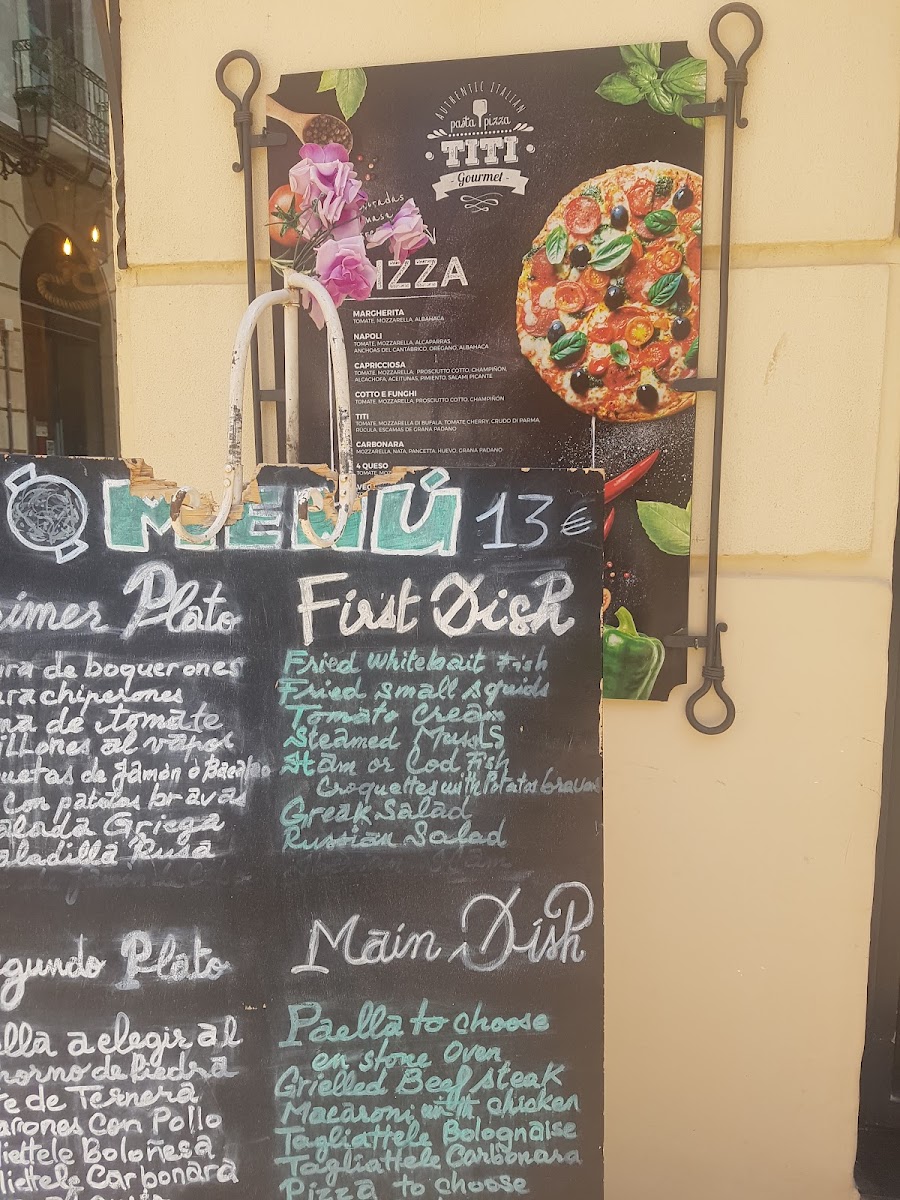 AUTHENTIC ITALIAN
pasta pizza
TITI
- Gourmet -
IZZA
MARGHERITA
TOMATE, MOZZARELLA, ALBAHACA
NAPOLI
TOMATE, MOZZARELLA, ALCAPARRAS,
ANCHOAS DEL CANTÁBRICO, ORÉGANO, ALBAHACA
CAPRICCIOSA
TOMATE, MOZZARELLA, PROSCIUTTO COTTO, CHAMPIÑÓN,
ALCACHOFA, ACEITUNAS, PIMIENTO, SALAMI PICANTE
COTTO E FUNGHI
TOMATE, MOZZARELLA, PROSCIUTTO COTTO, CHAMPIÑÓN
TITI
TOMATE, MOZZARELLA DI BUFALA, TOMATE CHERRY, CRUDO DI PARMA
RÚCULA, ESCAMAS DE GRANA PADANO
CARBONARA
MOZZARELLA, NATA, PANCETTA, HUEVO, GRANA PADANO
4 QUESO
MENÚ 13 €
rimer Plato
ura de boquerones
ura chiperones
ma de tomate
illones al vapor
quetas de Jamón o Bacalao
con patatas bravas
alada Griega
aladilla Rusa
First Dish
Fried whitebait Fish
Fried small squids
Tomato Cream
Steamed Mussls
Ham or Cod Fish
Croquettes with Potatas bravas
Greak Salad
Russian Salad
egundo Plato
ella a elegir al
horno de Piedra
te de Ternera
arrones Con Pollo
liettele Boloñesa
liettele Carbonara
Main Dish
Paella to choose
en stone Oven
Grielled Beef steak
Macaroni with chicken
Tagliattele Bolognaise
Tagliattele Carbonara
Pizza to choose